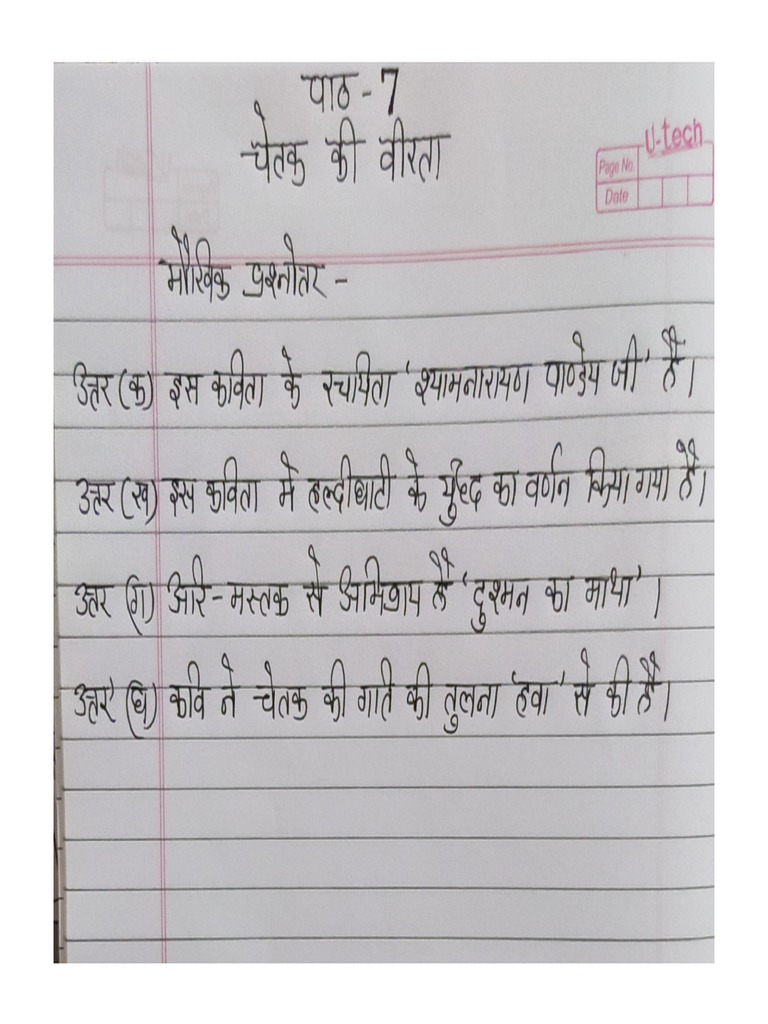 पाठ - 7
चेतक की वीरता
U-tech
Page No.
Date
मौखिक प्रश्नोतर -
उत्तर (क) इस कविता के रचयिता 'श्यामनारायण पाण्डेय जी' है।
उत्तर (ख) इस कविता मे हल्दीघाटी के युद्द का वर्णन किया गया है।
उत्तर (ग) अरि-मस्तक से अभिप्राय है 'दुश्मन का माथा'।
उत्तर (घ) कवि ने चेतक की गति की तुलना 'हवा' से की है।